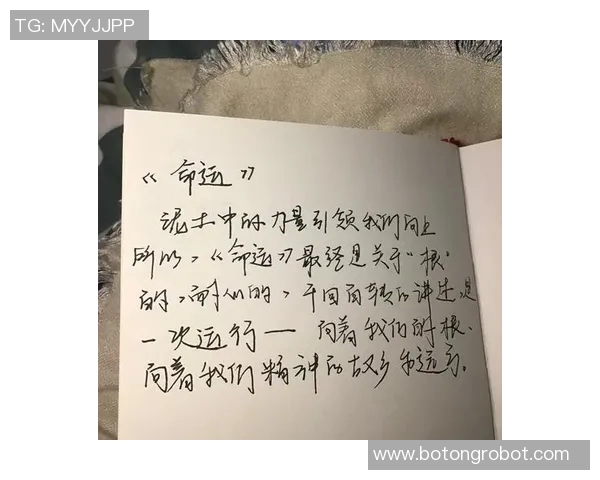 TG: MYYJJPP
《命运》
泥土中的力量引领我们向上
所以，《命运》最终是关于“根”
的，而她的，千回百转的讲述，是
一次远行——向着我们的根、
向着我们精神的故乡和远方。
www.botongrobot.com